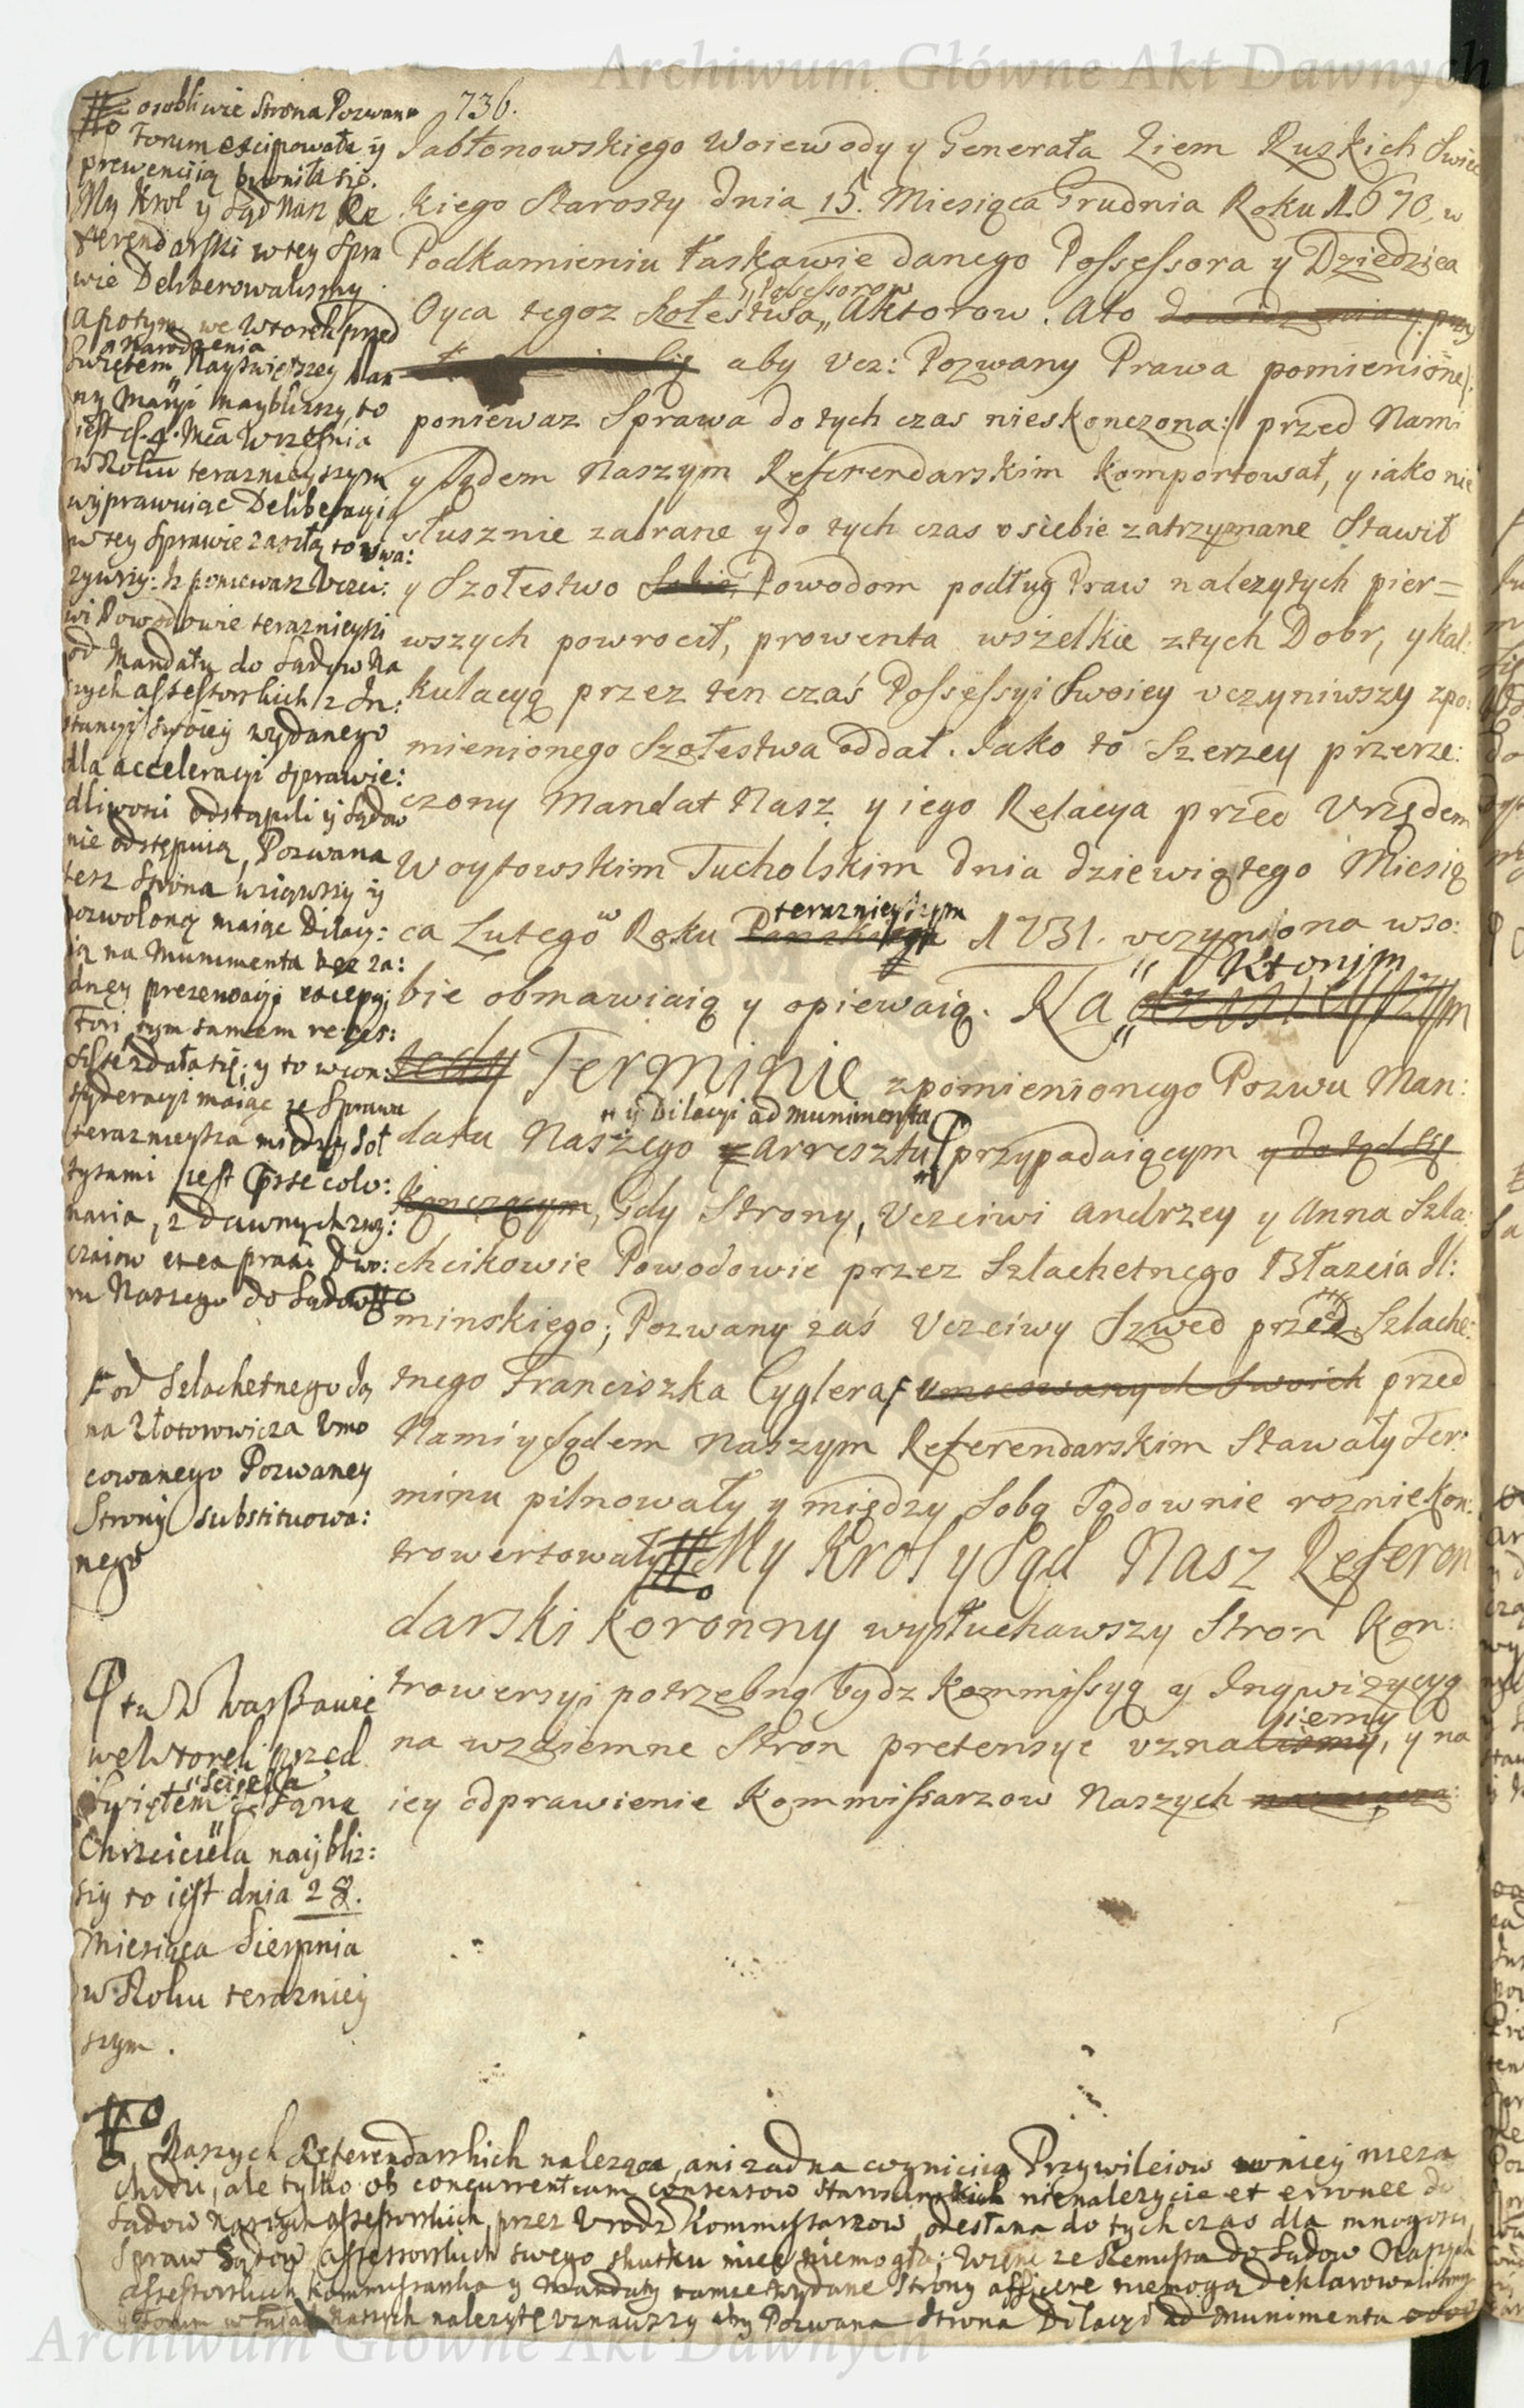 Archiwum Główne Akt Dawnych
736.
Jabłonowskiego Woiewody y Generała Ziem Ruskich Świe
kiego Starosty dnia 15. Miesiąca Grudnia Roku 1670, w
Podkamieniu łaskawie danego Possessora y Dziedzica
y Possessorow
Oyca tegoz Sołestwa, Aktorow. Ato
aby Ucz: Pozwany Prawa pomienione/:
poniewaz Sprawa do tych czas nieskonczona:/ przed Nami
y Sądem Naszym Referendarskim komportował, y iako nie
słusznie zabrane y do tych czas u siebie zatrzymane Stawił
y Szołestwo Sobie Powodom podług Praw nalezytych pier=
wszych powrocił, prowenta wszelkie z tych Dobr, y kal:
kulacyą przez ten czas Possessyi Swoiey uczyniwszy z po:
mienionego Szołestwa oddał. Jako to Szerzey przerze:
czony Mandat Nasz y iego Relacya przed Urzędem
Woytowskim Tucholskim dnia dziewiątego Miesią
terazniejszym
ca Lutego w Roku 1731. uczyniona w so:
Ktorijm
bie obmawiaią y opiewaią. Na
tedy Terminie z pomienionego Pozwu Man:
y Dilacyi ad munimenta
datu Naszego z Arresztu przypadaiącym y dotąd się
konczącym, Gdy Strony, Ucziwi Andrzey y Anna Szla:
chcikowie Powodowie przez Szlachetnego Błazeia Sl:
minskiego; Pozwany zaś Ucziwy Szwed przez Szlache:
tnego Franciszka Cyglera umocowanych Swoich przed
Nami y Sądem Naszym Referendarskim Stawały Ter:
minu pilnowały y między Sobą Sądownie roznie kon:
trowertowały My Krol y Sąd Nasz Referen
darski Koronny wysłuchawszy Stron Kon:
trowersyi potrzebną bydz Kommissyą y Inqwizycyą
iemy
na wzaiemne Stron pretensye uzna, y na
iey odprawienie Kommissarzow Naszych
osobliwie Strona Pozwana
Forum excipowała y
prewencyią broniła się.
My Krol y Sąd Nasz Re
ferendarski w tey Spra
wie Deliberowalismy
a potym we Wtorek przed
Narodzenia
Świętem Nayświętszey Pan
ny Maryi naybliszy, to
iest d. 4. Mca Września
w Roku teraznieyszym
wyprawuiąc Deliberacyią
w tey Sprawie zaszłą to uwa:
zywszy: Iz poniewasz Uczci:
wi Powodowie teraznieysi
od Mandatu do Sądow Na
szych Assessorskich z In:
stancyi swoiey wydanego
dla acceleracyi Sprawie:
dliwosci odstąpili y Sądow
nie odstępuią, Pozwana
tesz Strona wziąwszy y
pozwoloną maiąc Dilacy:
ią na Munimenta bez za:
dney prezendacyi excepcyi
Fori, tym samem
y to w con:
syderacyi maiąc ze Sprawa
teraznieysza między Soł
tysami iest
naria, z dawnych zwy:
czaiow et ex praxi Dwo:
ru Naszego do Sądow
od Szlachetnego Ja
na Złotorowicza Umo
cowanego Pozwaney
Strony substituowa:
nego
tu w Warszawie
we Wtorek przed
Ścięcia
Swiętem S. Jana
Chrzciciela naybliz:
szy to iest dnia 28.
Miesiąca Sierpnia
w Roku terazniey
szym.
Naszych Referendarskich naleząca, ani zadna Przywileiow w niey nieza
chodzi, ale tylko ob concurrentiam consensow Starscinskich nienalezycie et erronee do
Sądow Naszych Assessorskich, przez Urodz Kommissarzow odesłana do tych czas dla mnogosci
Spraw Sądow Assessorskich swego skutku miec niemogła; Więc ze Remissa do Sądow Naszych
Assessorskich Kommissarska y Mandaty tamze wydane Strony afficere niemogą deklarowalismy
y Forum w Sądach Naszych nalezyte uznawszy aby Pozwana Strona Dilacyi ad munimenta
Archiwum Główne Akt Dawnych